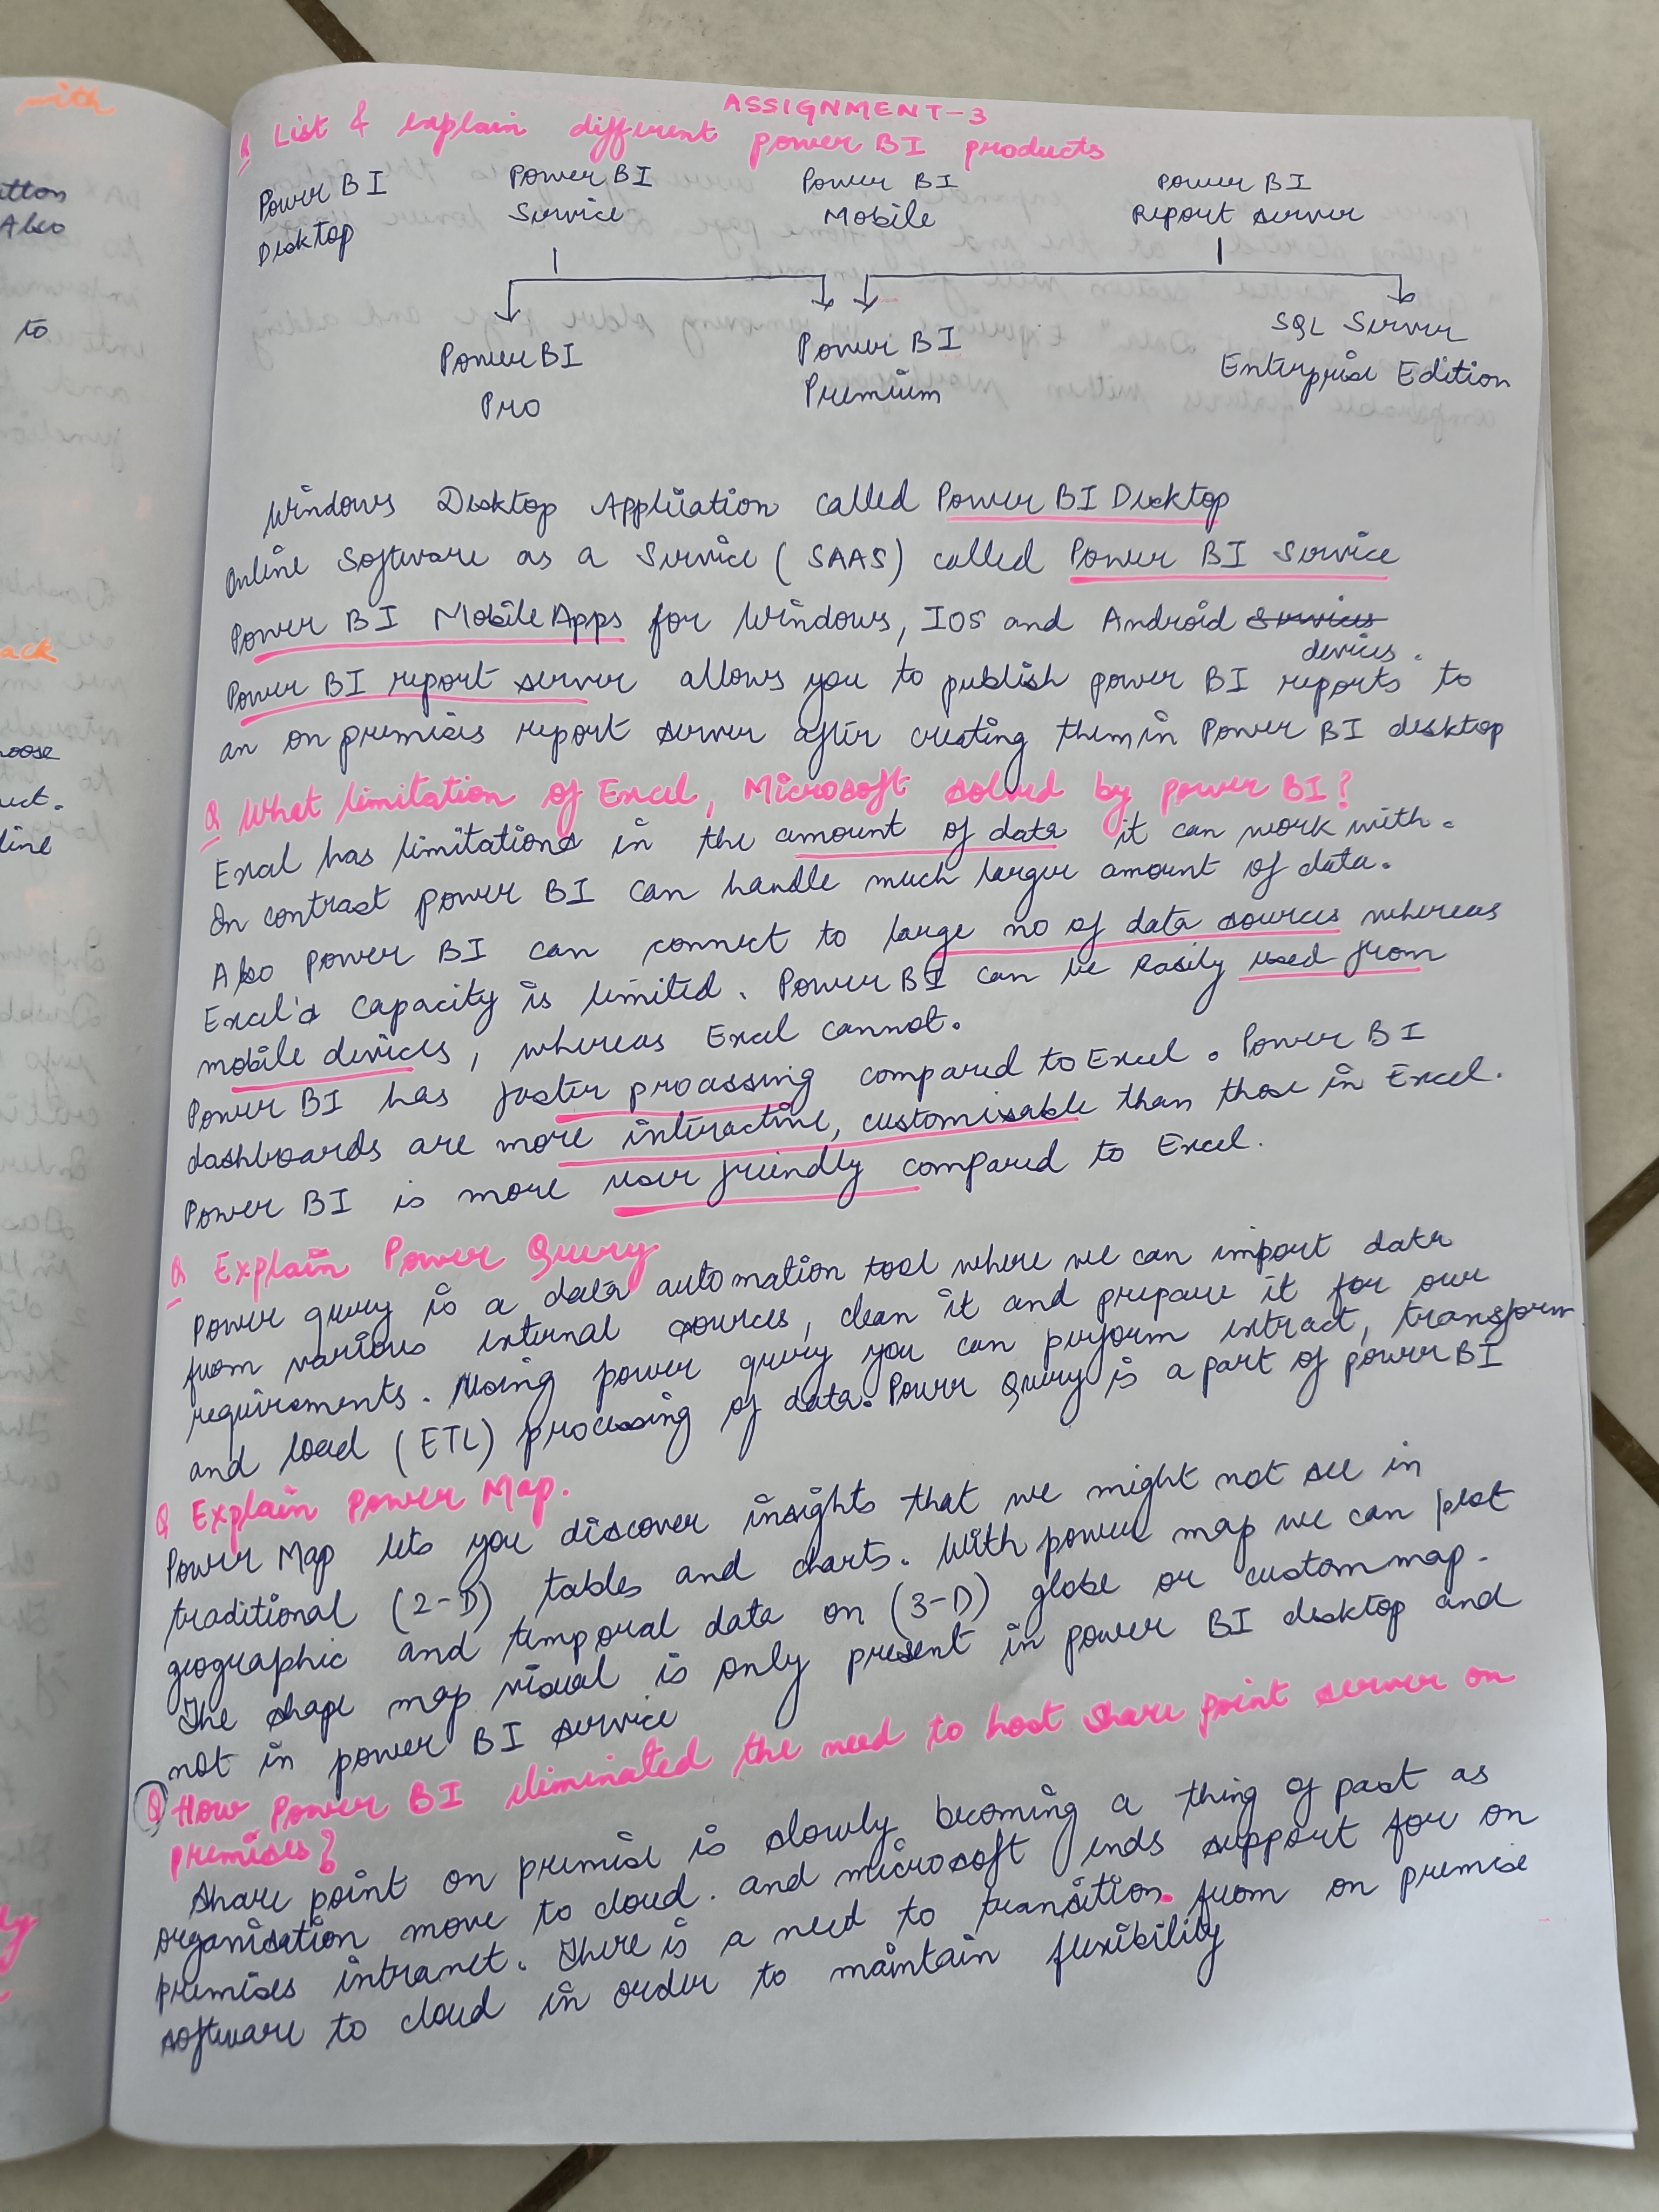 ASSIGNMENT-3
Q List & explain different power BI products
Power BI Desktop
Power BI Service
Power BI Mobile
Power BI Report server
Power BI Pro
Power BI Premium
SQL Server Enterprise Edition
Windows Desktop Application called Power BI Desktop
Online Software as a Service (SAAS) called Power BI Service
Power BI Mobile Apps for Windows, IOS and Android services
devices.
Power BI report server allows you to publish power BI reports to
an on premises report server after creating them in Power BI desktop
Q What limitation of Excel, Microsoft solved by power BI?
Excel has limitations in the amount of data it can work with.
On contrast power BI can handle much larger amount of data.
Also power BI can connect to large no of data sources whereas
Excel's capacity is limited. Power BI can be easily used from
mobile devices, whereas Excel cannot.
Power BI has faster processing compared to Excel. Power BI
dashboards are more interactive, customisable than those in Excel.
Power BI is more user friendly compared to Excel.
Q Explain Power Query
Power query is a data automation tool where we can import data
from various external sources, clean it and prepare it for our
requirements. Using power query you can perform extract, transform
and load (ETL) processing of data. Power Query is a part of power BI
Q Explain Power Map.
Power Map lets you discover insights that we might not see in
traditional (2-D) tables and charts. With power map we can plot
geographic and temporal data on (3-D) globe or custom map.
The shape map visual is only present in power BI desktop and
not in power BI service
Q How Power BI eliminated the need to host share point server on
premises?
Share point on premise is slowly becoming a thing of past as
organisation move to cloud. and microsoft ends support for on
premises intranet. There is a need to transition from on premise
software to cloud in order to maintain flexibility
with
Also
to
ack